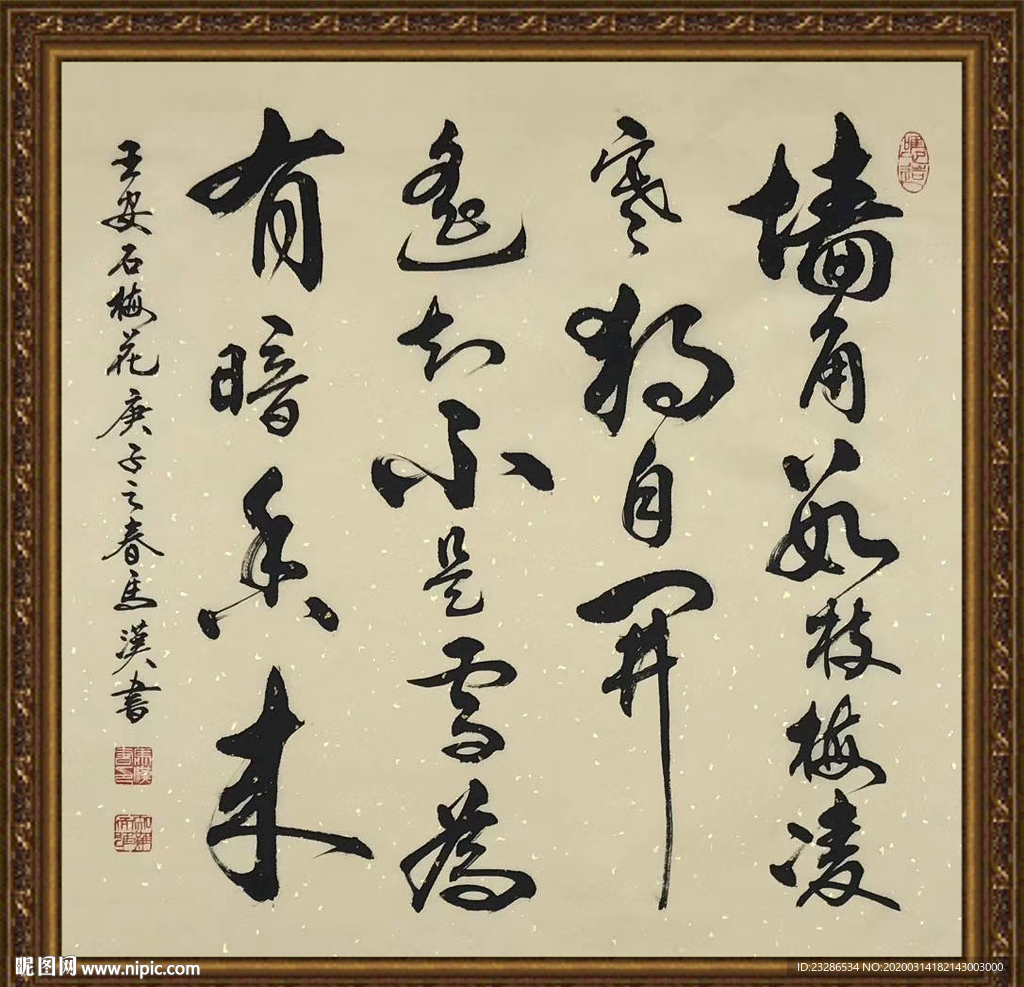 墙角数枝梅凌
寒独自开
遥知不是雪为
有暗香来
王安石梅花庚子之春马汉书
昵图网 www.nipic.com
ID:23286534 NO:20200314182143003000